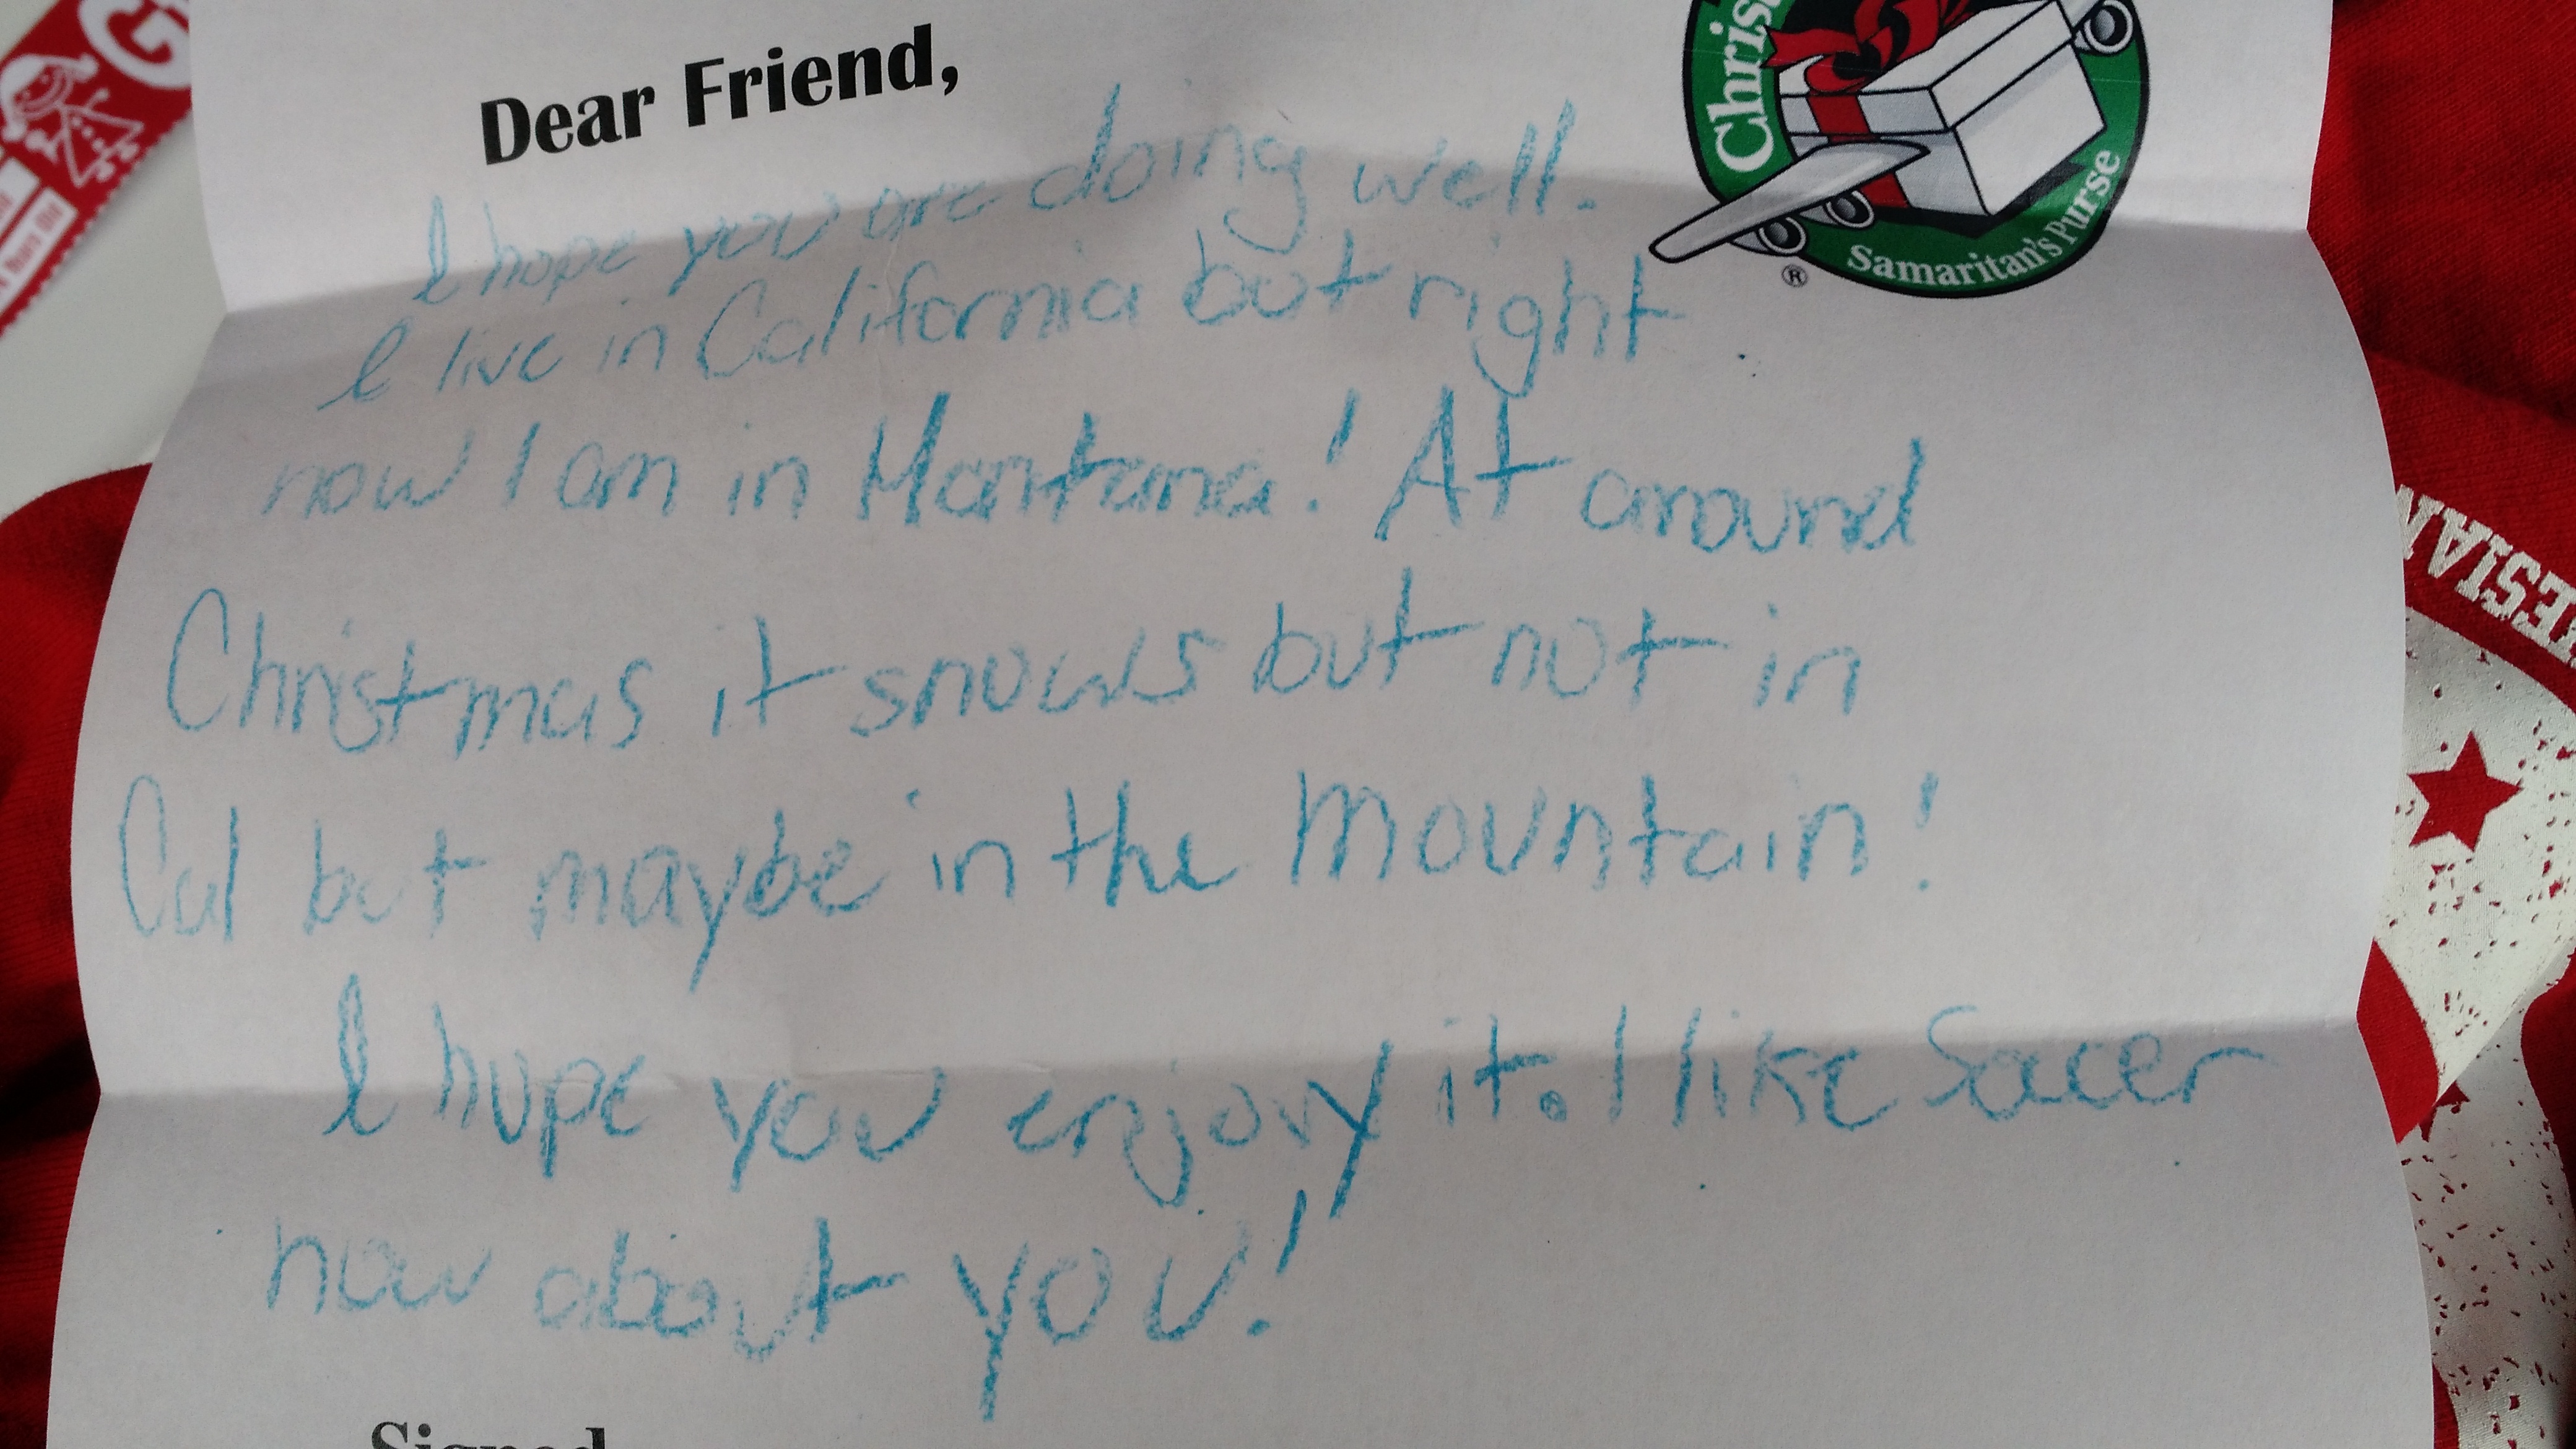 Dear Friend,
I hope you are doing well.
I live in California but right
now I am in Montana! At around
Christmas it snows but not in
Cal but maybe in the mountain!
I hope you enjoyy it. I like Sacer
how about you!
Signed
Chris
Samaritan's Purse
®
G
ESIAN